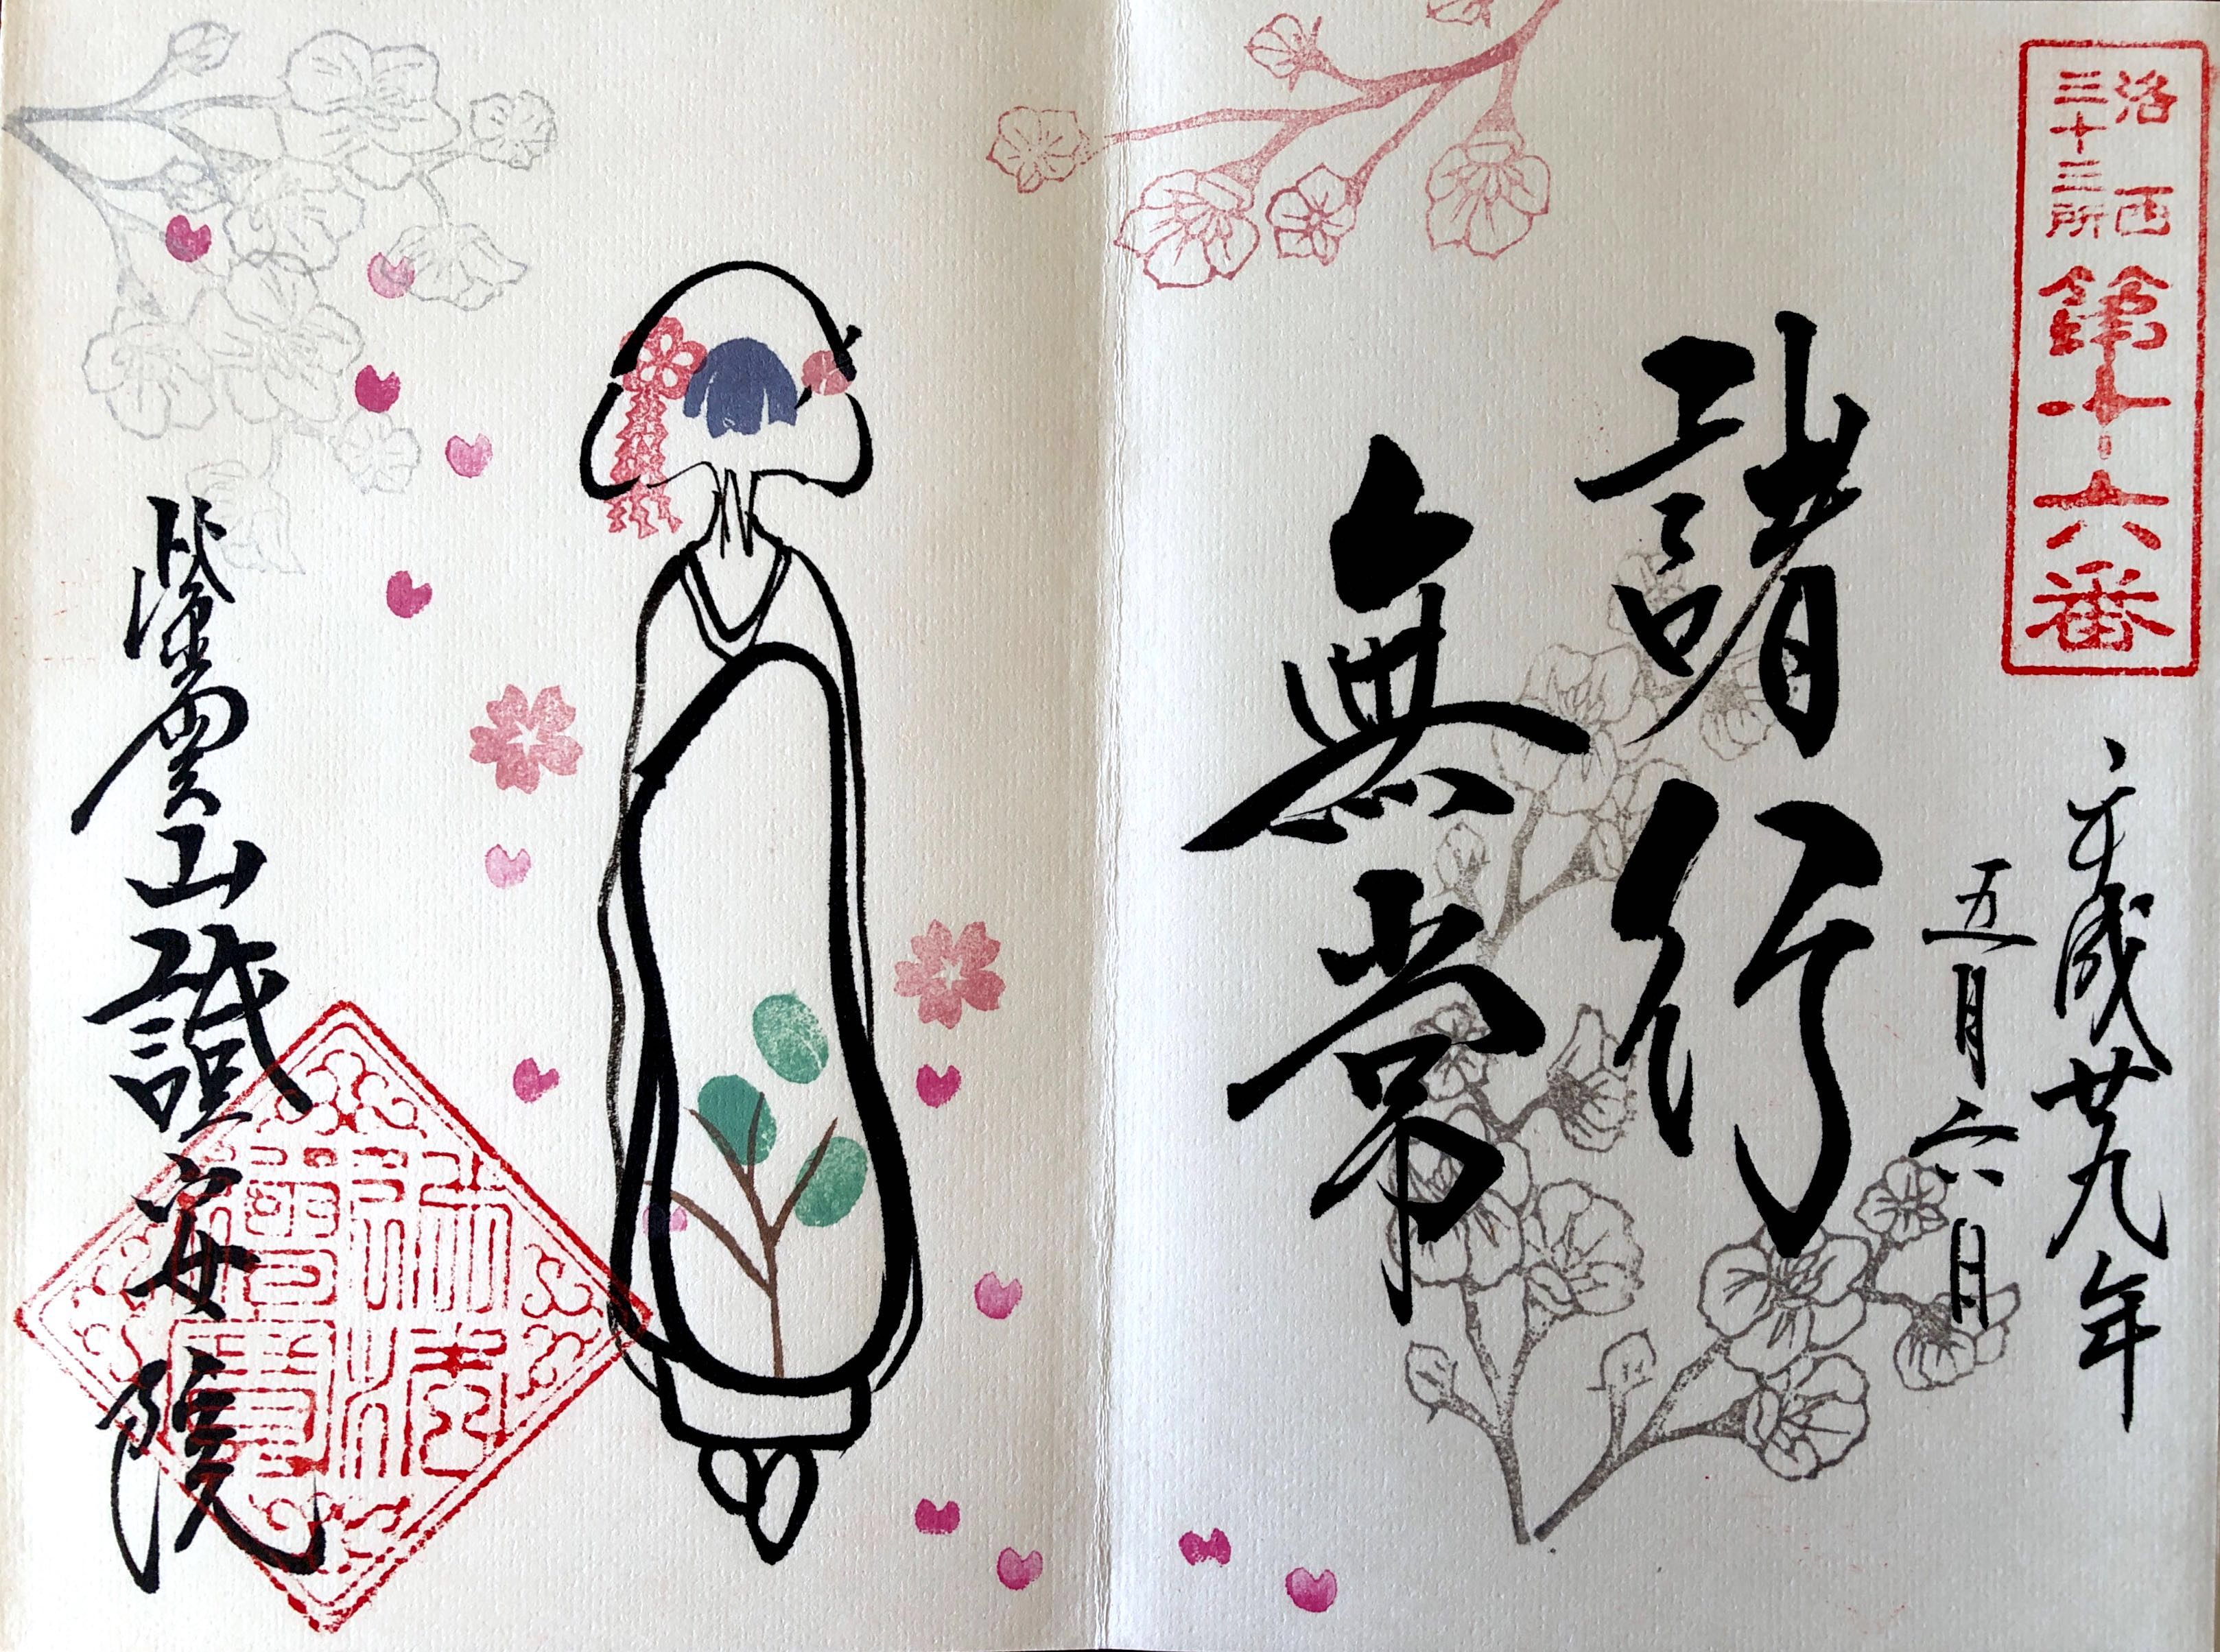 洛西
三十三所
第十六番
平成廿九年
五月六日
諸行
無常
山證安院
佛法僧寶